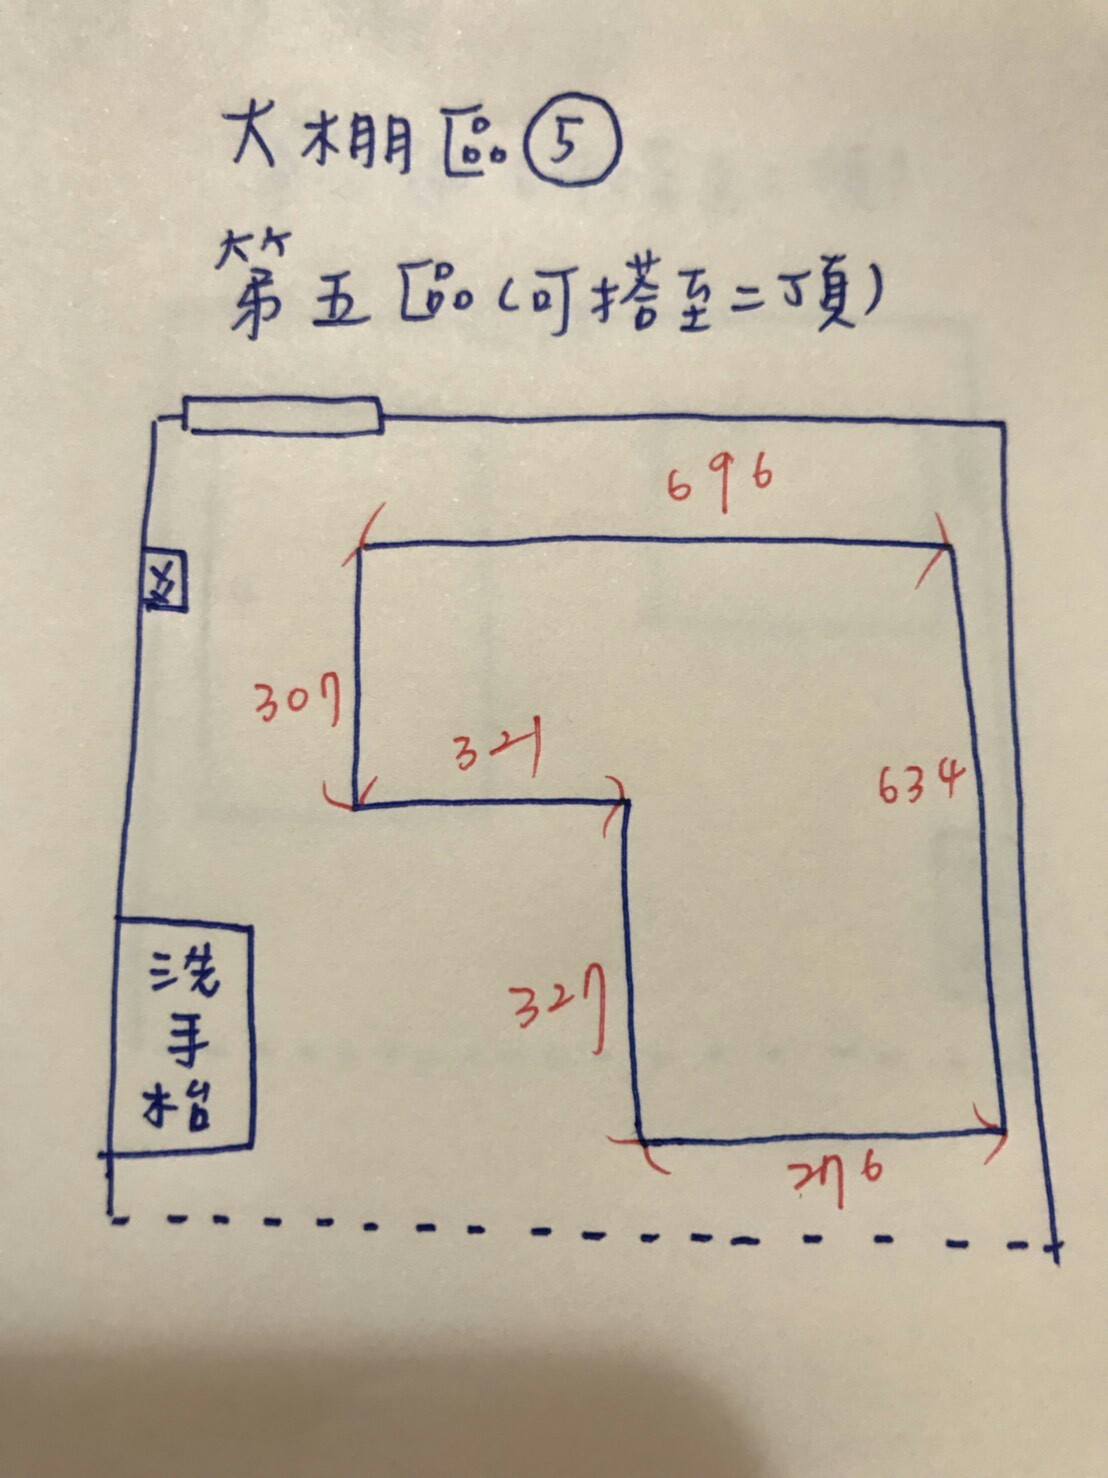 大棚區⑤
第五區(可搭至二頂)
696
307
321
634
洗
手
台
327
276